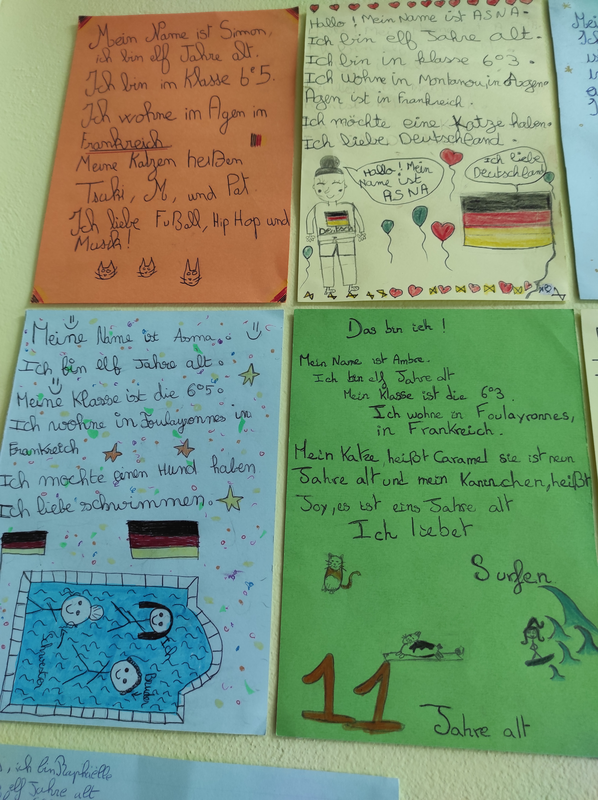 Mein Name ist Simon,
ich bin elf Jahre alt.
Ich bin im Klasse 6e5.
Ich wohne im Agen im
Frankreich
Meine Katzen heißen
Tsuki, M, und Pat
Ich liebe Fußball, Hip Hop und
Musik!
Hallo! Mein Name ist ASNA.
Ich bin elf Jahre alt.
Ich bin in klasse 6°3.
Ich Wohne in Montanou, in Agen.
Agen ist in Frankreich.
Ich möchte eine Katze haben.
Ich liebe Deutschland.
Hallo! Mein
Name ist
ASNA
Ich liebe
Deutschland
Deutsch
Meine Name ist Asma.
Ich bin elf Jahre alt.
Meine Klasse ist die 6°5.
Ich wohne in Foulayronnes in
Frankreich
Ich mochte einen Hund haben
Ich liebe schwimmen.
Schwester
Ich
Bruder
Das bin ich!
Mein Name ist Ambre.
Ich bin elf Jahre alt
Mein Klasse ist die 6°3.
Ich wohne in Foulayronnes,
in Frankreich.
Mein Katze, heißt Caramel sie ist neun
Jahre alt und mein Kaninchen, heißt
Joy, es ist eins Jahre alt
Ich liebet
Surfen
11
Jahre alt
, ich bin Raphaëlle
elf Jahre alt